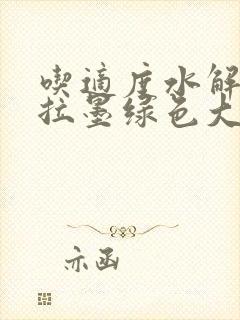 喫適度水解
拉墨绿色大
亦函